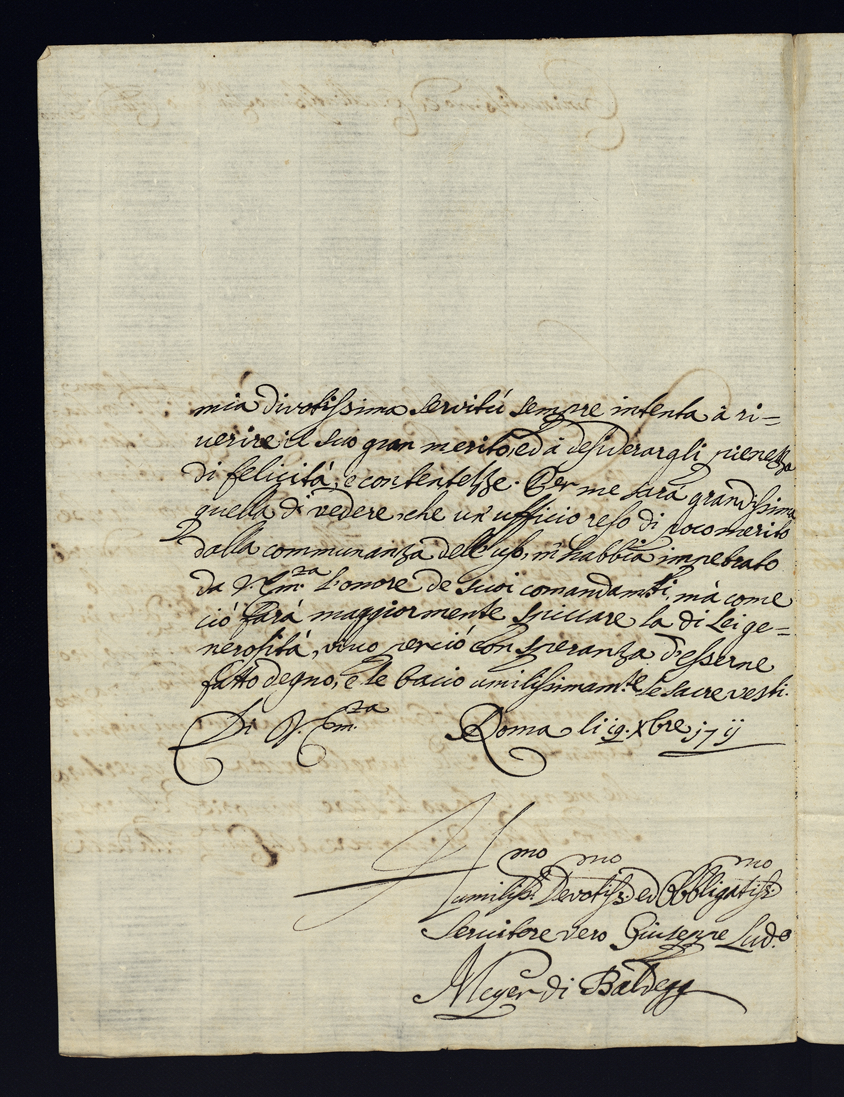 mia divotissima servitù sempre intenta à ri=
verire il suo gran merito, ed à desiderargli pienezza
di felicità, e contentesse. Per me sarà grandissima
quella di vedere, che un' ufficio reso di poco merito
dalla communanza dell' uso, m' habbia impetrato
da V. Em.za l' onore de suoi comandam.ti, mà come
ciò farà maggiormente spiccare la di Lei ge=
nerosità, vivo perciò con speranza d' esserne
fatto degno, e le bacio umilissimam.te le sacre vesti.
Di V. Em.za Roma li 19. Xbre 1711
Humiliss.mo Devotiss.mo ed Obbligatiss.mo
Servitore vero Giuseppe Lud.o
Meyer di Baldegg